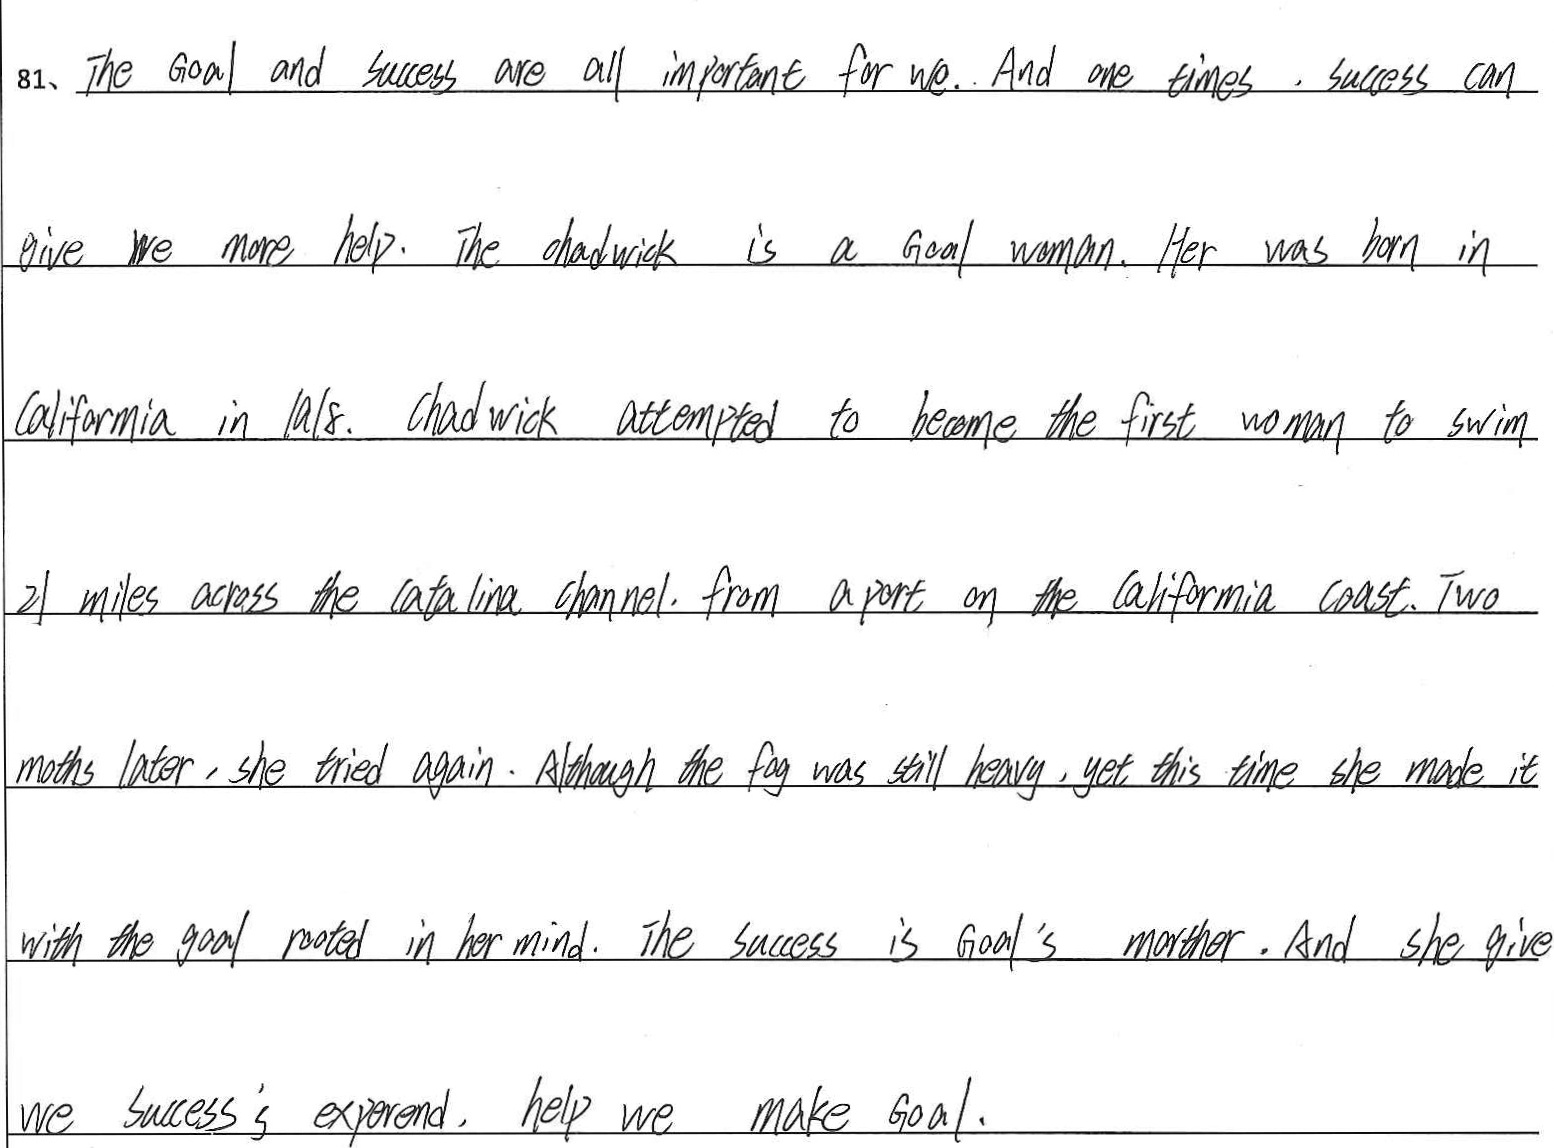 81、The Goal and success are all important for we. And one times, success can
give we more help. The chadwick is a Goal woman. Her was born in
Califormia in 1918. Chadwick attempted to become the first woman to swim
21 miles across the catalina channel. from a port on the Califormia coast. Two
moths later, she tried again. Although the fog was still heavy, yet this time she made it
with the goal rooted in her mind. The success is Goal's morther. And she give
we success's experend. help we make Goal.